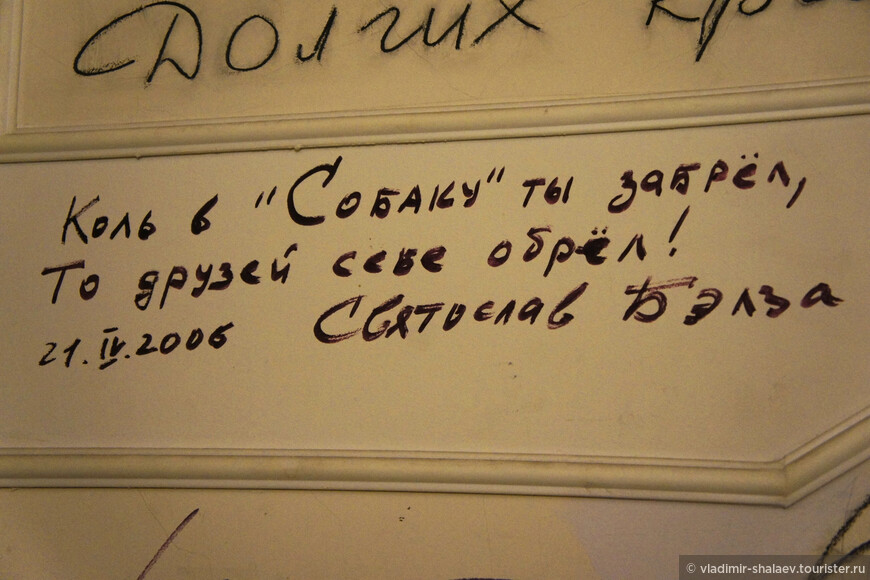 Долгих
Коль в "Собаку" ты забрёл,
То друзей себе обрёл!
21.IV.2006 Святослав Бэлза
© vladimir-shalaev.tourister.ru